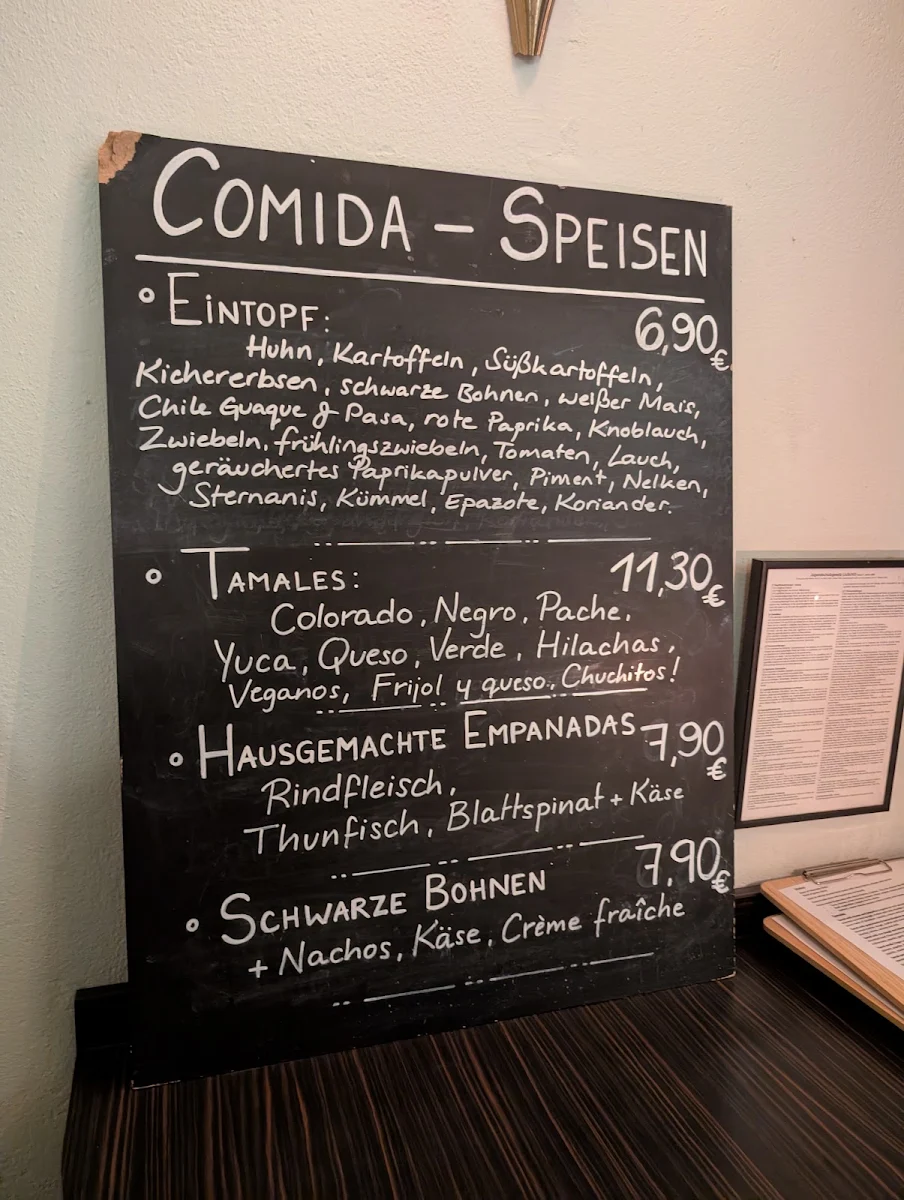 COMIDA – SPEISEN
° EINTOPF: 6,90 €
Huhn, Kartoffeln, Süßkartoffeln,
Kichererbsen, schwarze Bohnen, weißer Mais,
Chile Guaque & Pasa, rote Paprika, Knoblauch,
Zwiebeln, frühlingszwiebeln, Tomaten, Lauch,
geräuchertes Paprikapulver, Piment, Nelken,
Sternanis, Kümmel, Epazote, Koriander.
° TAMALES: 11,30 €
Colorado, Negro, Pache,
Yuca, Queso, Verde, Hilachas,
Veganos, Frijol y queso, Chuchitos!
° HAUSGEMACHTE EMPANADAS 7,90 €
Rindfleisch,
Thunfisch, Blattspinat + Käse
° SCHWARZE BOHNEN 7,90 €
+ Nachos, Käse, Crème fraîche